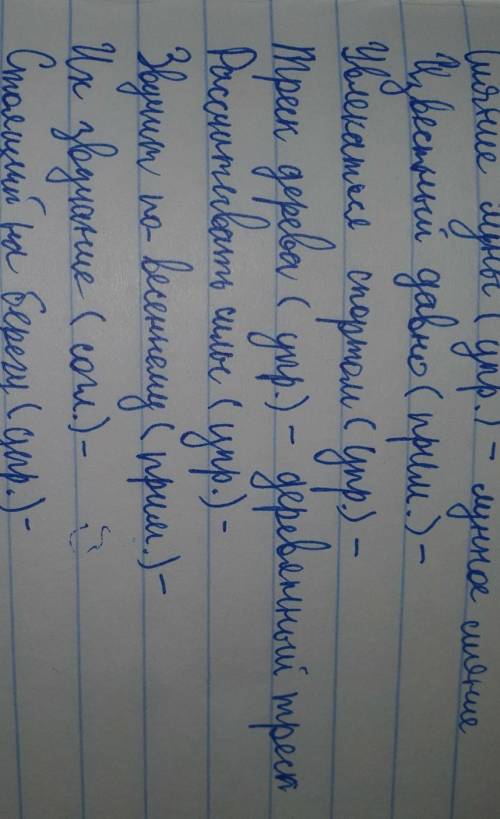 Сияние луны (упр.) - лунное сияние
Известный давно (прим.) -
Увлекаться спортом (упр.) -
Треск дерева (упр.) - деревянный треск
Рассчитывать силы (упр.) -
Звучит по-весеннему (прим.) -
Их звучание (согл.) -
Стоящий на берегу (упр.) -